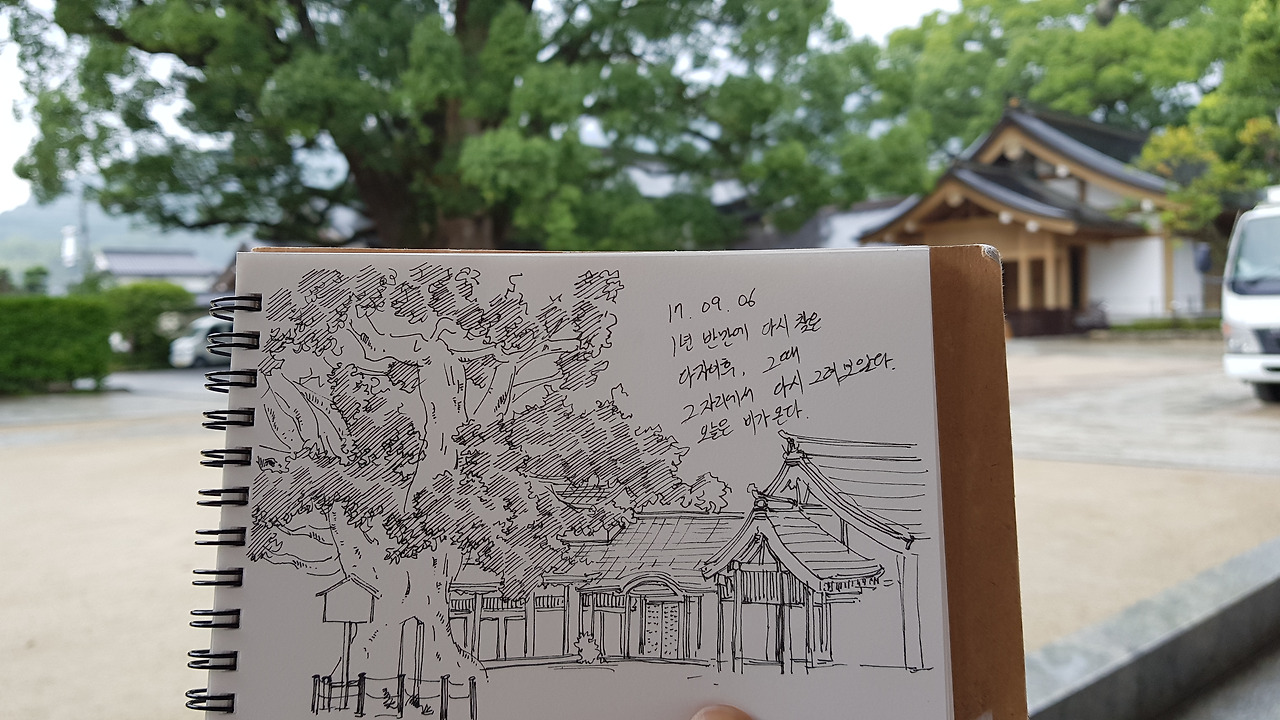 17. 09. 06
1년 반만에 다시 찾은
다자이후, 그때
그 자리에서 다시 그려보았다.
오늘은 비가 온다.